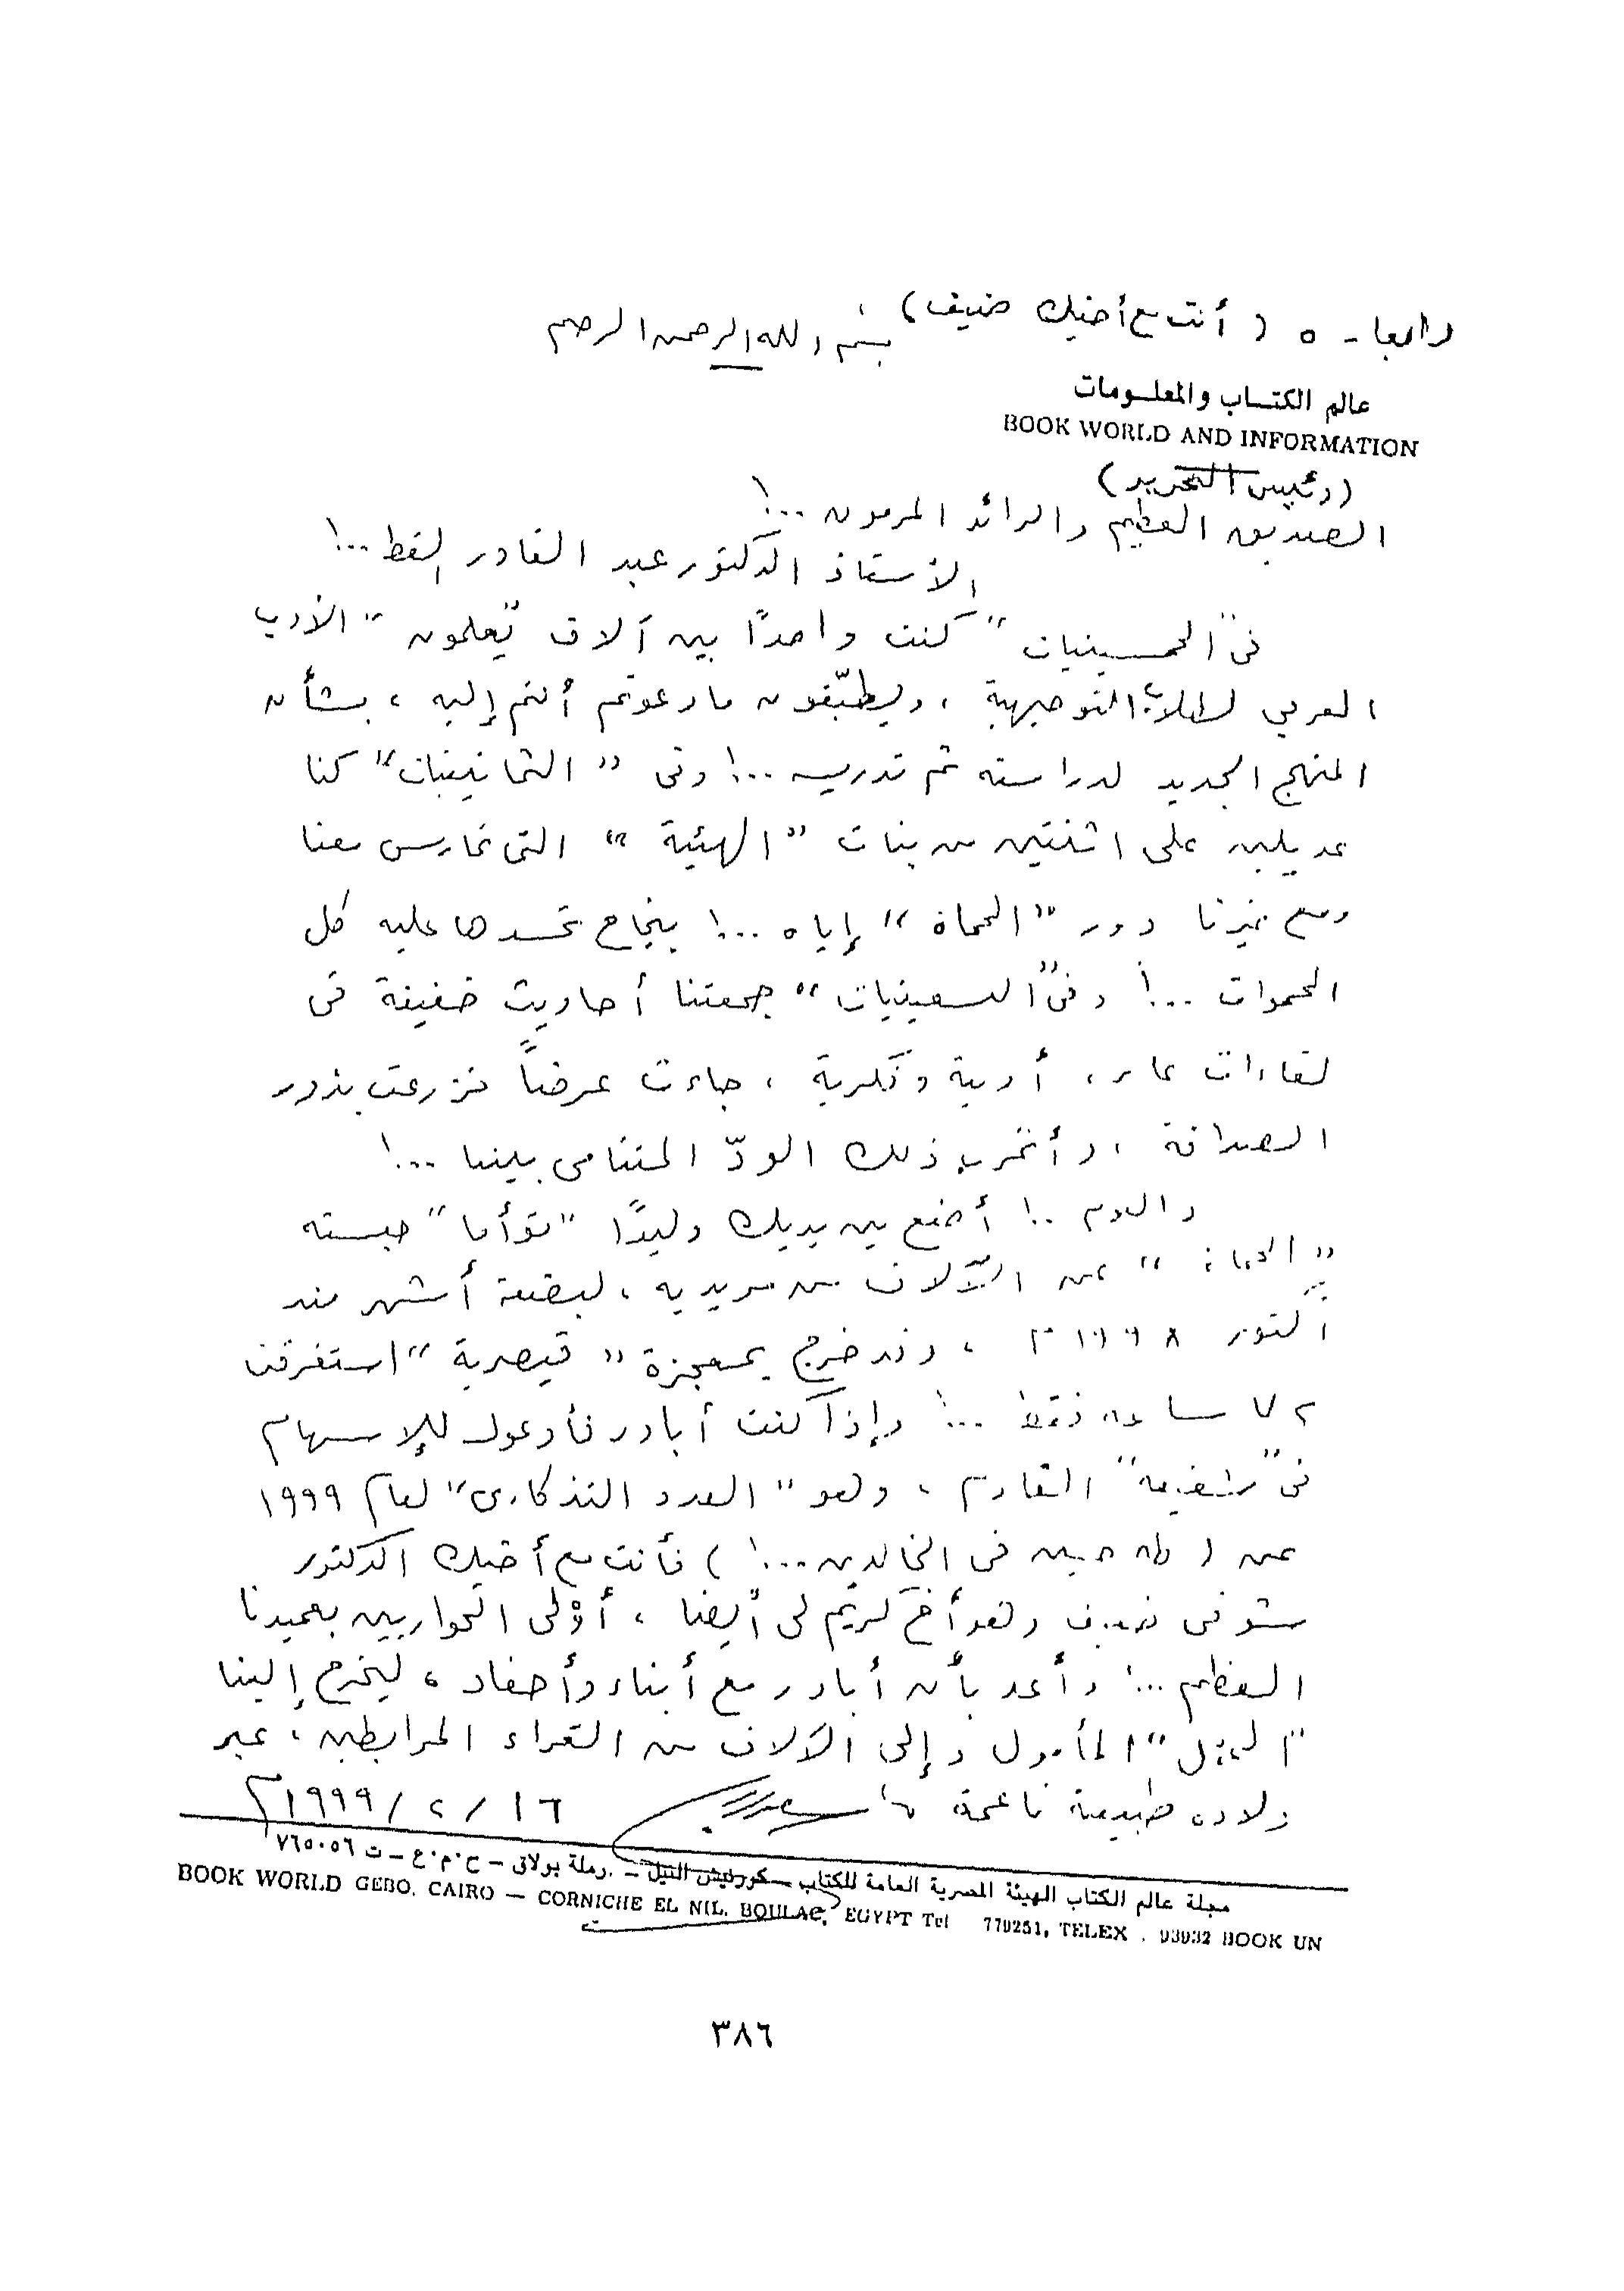 رابعا - ٥ ( أنت مع أخيك ضيف )
بسم الله الرحمن الرحيم
عالم الكتــاب والمعلــومات
BOOK WORLD AND INFORMATION
(رئيس التحرير)
الصديق العظيم والرائد المرموق ...!
الأستاذ الدكتور عبد القادر القط ...!
فى "الخمسينيات" كنت واحدًا بين آلاف يعلمون "الأدب
العربي لطلاب التوجيهية ، ويطبّقون ما دعوتم أنتم إليه ، بشأن
المنهج الجديد لدراسته ثم تدريسه ...! وفى "الثمانينيات" كنا
عديلين على اثنتين من بنات "الهيئة" التى تمارس معنا
ومع غيرنا دور "الحماة" إياه ...! بنجاح تحسدها عليه كل
الحموات ...! وفى "التسعينيات" جمعتنا أحاديث خفيفة فى
لقاءات عابرة، أدبية وفكرية ، جاءت عرضاً فزرعت بذور
الصداقة ، وأثمرت ذلك الودّ المتنامى بيننا ...!
واليوم ..! أضع بين يديك وليدًا "توأما" حبسته
"الحماة" عن الآلاف من مريديه ، لبضعة أشهر منذ
أكتوبر ١٩٩٨م ، وقد خرج بمعجزة "قيصرية" استغرقت
٧٢ ساعة فقط ...! وإذا كنت أبادر فأدعوك للإسهام
فى "شقيقه" القادم ، وهو "العدد التذكارى" لعام ١٩٩٩
عن ( طه حسين فى الخالدين ...! ) فأنت مع أخيك الدكتور
شوقى ضيف وهو أخ كريم لى أيضا ، أوْلى الحواريين بعميدنا
العظيم ...! وأعد بأن أبادر مع أبناء وأحفاد ، ليخرج إلينا
المأمول وإلى الآلاف من القراء المرابطين ، عبر
ولادة طبيعية ناعمة
١٦ / ٢ / ١٩٩٩م
مجلة عالم الكتاب الهيئة المصرية العامة للكتاب – كورنيش النيل – رملة بولاق – ج.م.ع – ت ٧٦٥٠٥٦
BOOK WORLD GEBO. CAIRO — CORNICHE EL NIL. BOULAC, EGYPT Tel 779251, TELEX . 93932 BOOK UN
٣٨٦